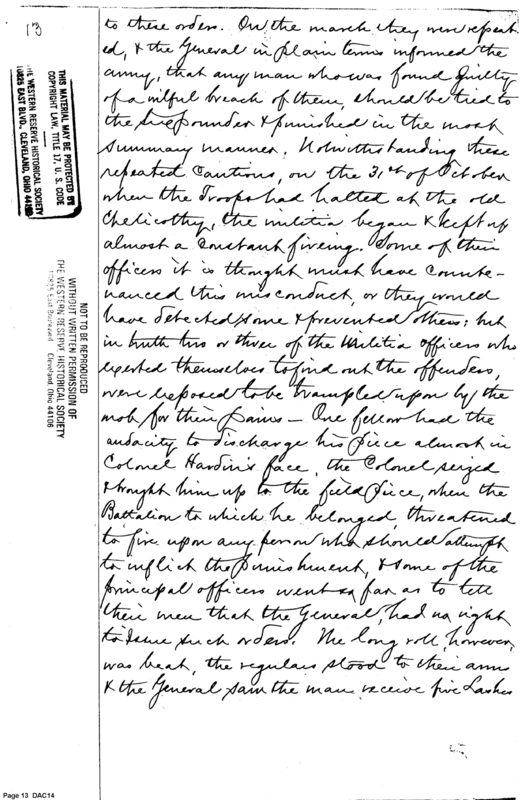 13
to these orders. On the march they were repeat
ed, & the General in plain terms informed the
army, that any man who was found guilty
of a wilful breach of them, should be tied to
the six pounder & punished in the most
summary manner. Notwithstanding these
repeated Cautions, on the 31st of October
when the Troops had halted at the old
Chelicothy, the militia began & kept up
almost a Constant fireing. Some of their
officers it is thought must have counte-
nanced this misconduct, or they would
have detected some & prevented others; but
in truth two or three of the Militia officers who
exerted themselves to find out the offenders,
were exposed to be trampled upon by the
mob for their pains — One fellow had the
audacity to discharge his piece almost in
Colonel Hardin's face, the Colonel seized
& brought him up to the field piece, when the
Battalion to which he belonged, threatened
to fire upon any person who should attempt
to inflict the punishment, & some of the
principal officers went so far as to tell
their men that the General, had no right
to Issue such orders. The long roll, however,
was beat, the regulars stood to their arms
& the General saw the man receive five Lashes
THIS MATERIAL MAY BE PROTECTED BY
COPYRIGHT LAW, TITLE 17, U. S. CODE
THE WESTERN RESERVE HISTORICAL SOCIETY
10825 EAST BLVD., CLEVELAND, OHIO 44106
NOT TO BE REPRODUCED
WITHOUT WRITTEN PERMISSION OF
THE WESTERN RESERVE HISTORICAL SOCIETY
10825 East Boulevard Cleveland, Ohio 44106
Page 13 DAC14